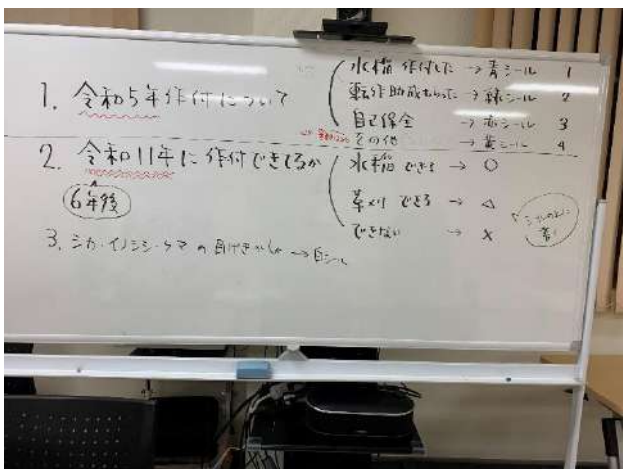 1. 令和5年作付について
水稲 作付した → 青シール 1
転作助成もらった → 緑シール 2
自己保全 → 赤シール 3
その他 → 黄シール 4
2. 令和11年に作付できてるか
6年後
水稲 できる → ○
草刈り できる → △
できない → ×
3. シカ・イノシシ・クマの → 白シール